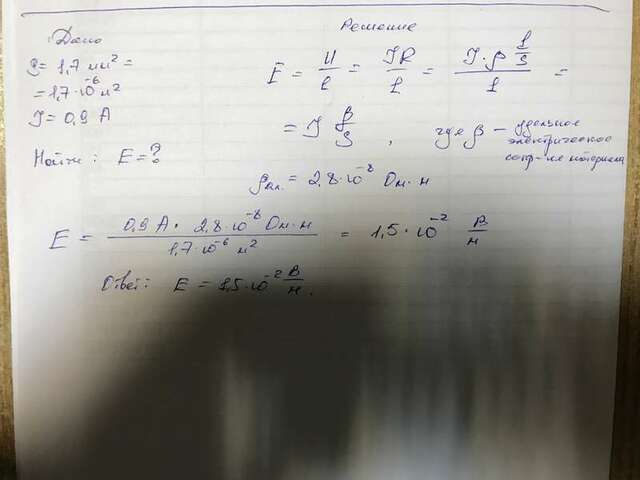 Дано
Решение
S = 1,7 мм² =
= 1,7·10⁻⁶ м²
J = 0,9 А
Найти: E = ?
E = U/l = JR/l = J·ρ l/S / l =
= J ρ/S, где ρ – удельное
электрическое
сопр-ие материала
ρал. = 2,8·10⁻⁸ Ом·м
E = 0,9 А · 2,8·10⁻⁸ Ом·м / 1,7·10⁻⁶ м² = 1,5·10⁻² В/м
Ответ: E = 1,5·10⁻² В/м.